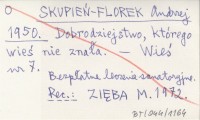 O SKUPIEŃ-FLOREK Andrzej
1950. Dobrodziejstwo, którego
wieś nie znała. — Wieś
nr 7.
Bezpłatne leczenie sanatoryjne.
Rec.: ZIĘBA M. 1972.
BT/044/1164